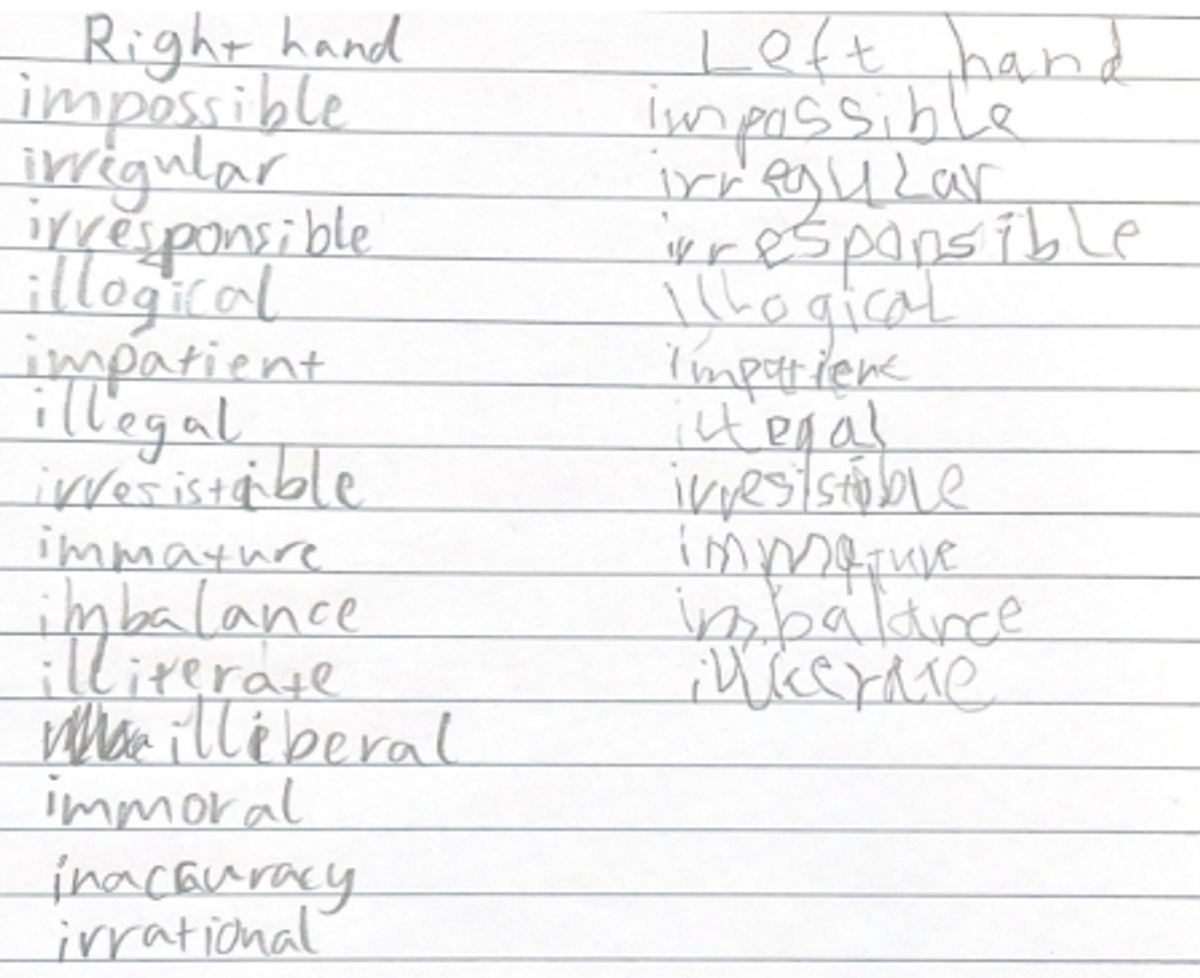 Right hand Left hand
impossible impossible
irrigular irregular
irresponsible irresponsible
illogical illogical
impatient impatient
illegal illegal
irresistible irresistible
immature immature
imbalance imbalance
illiterate illiterate
illiberal
immoral
inaccuracy
irrational